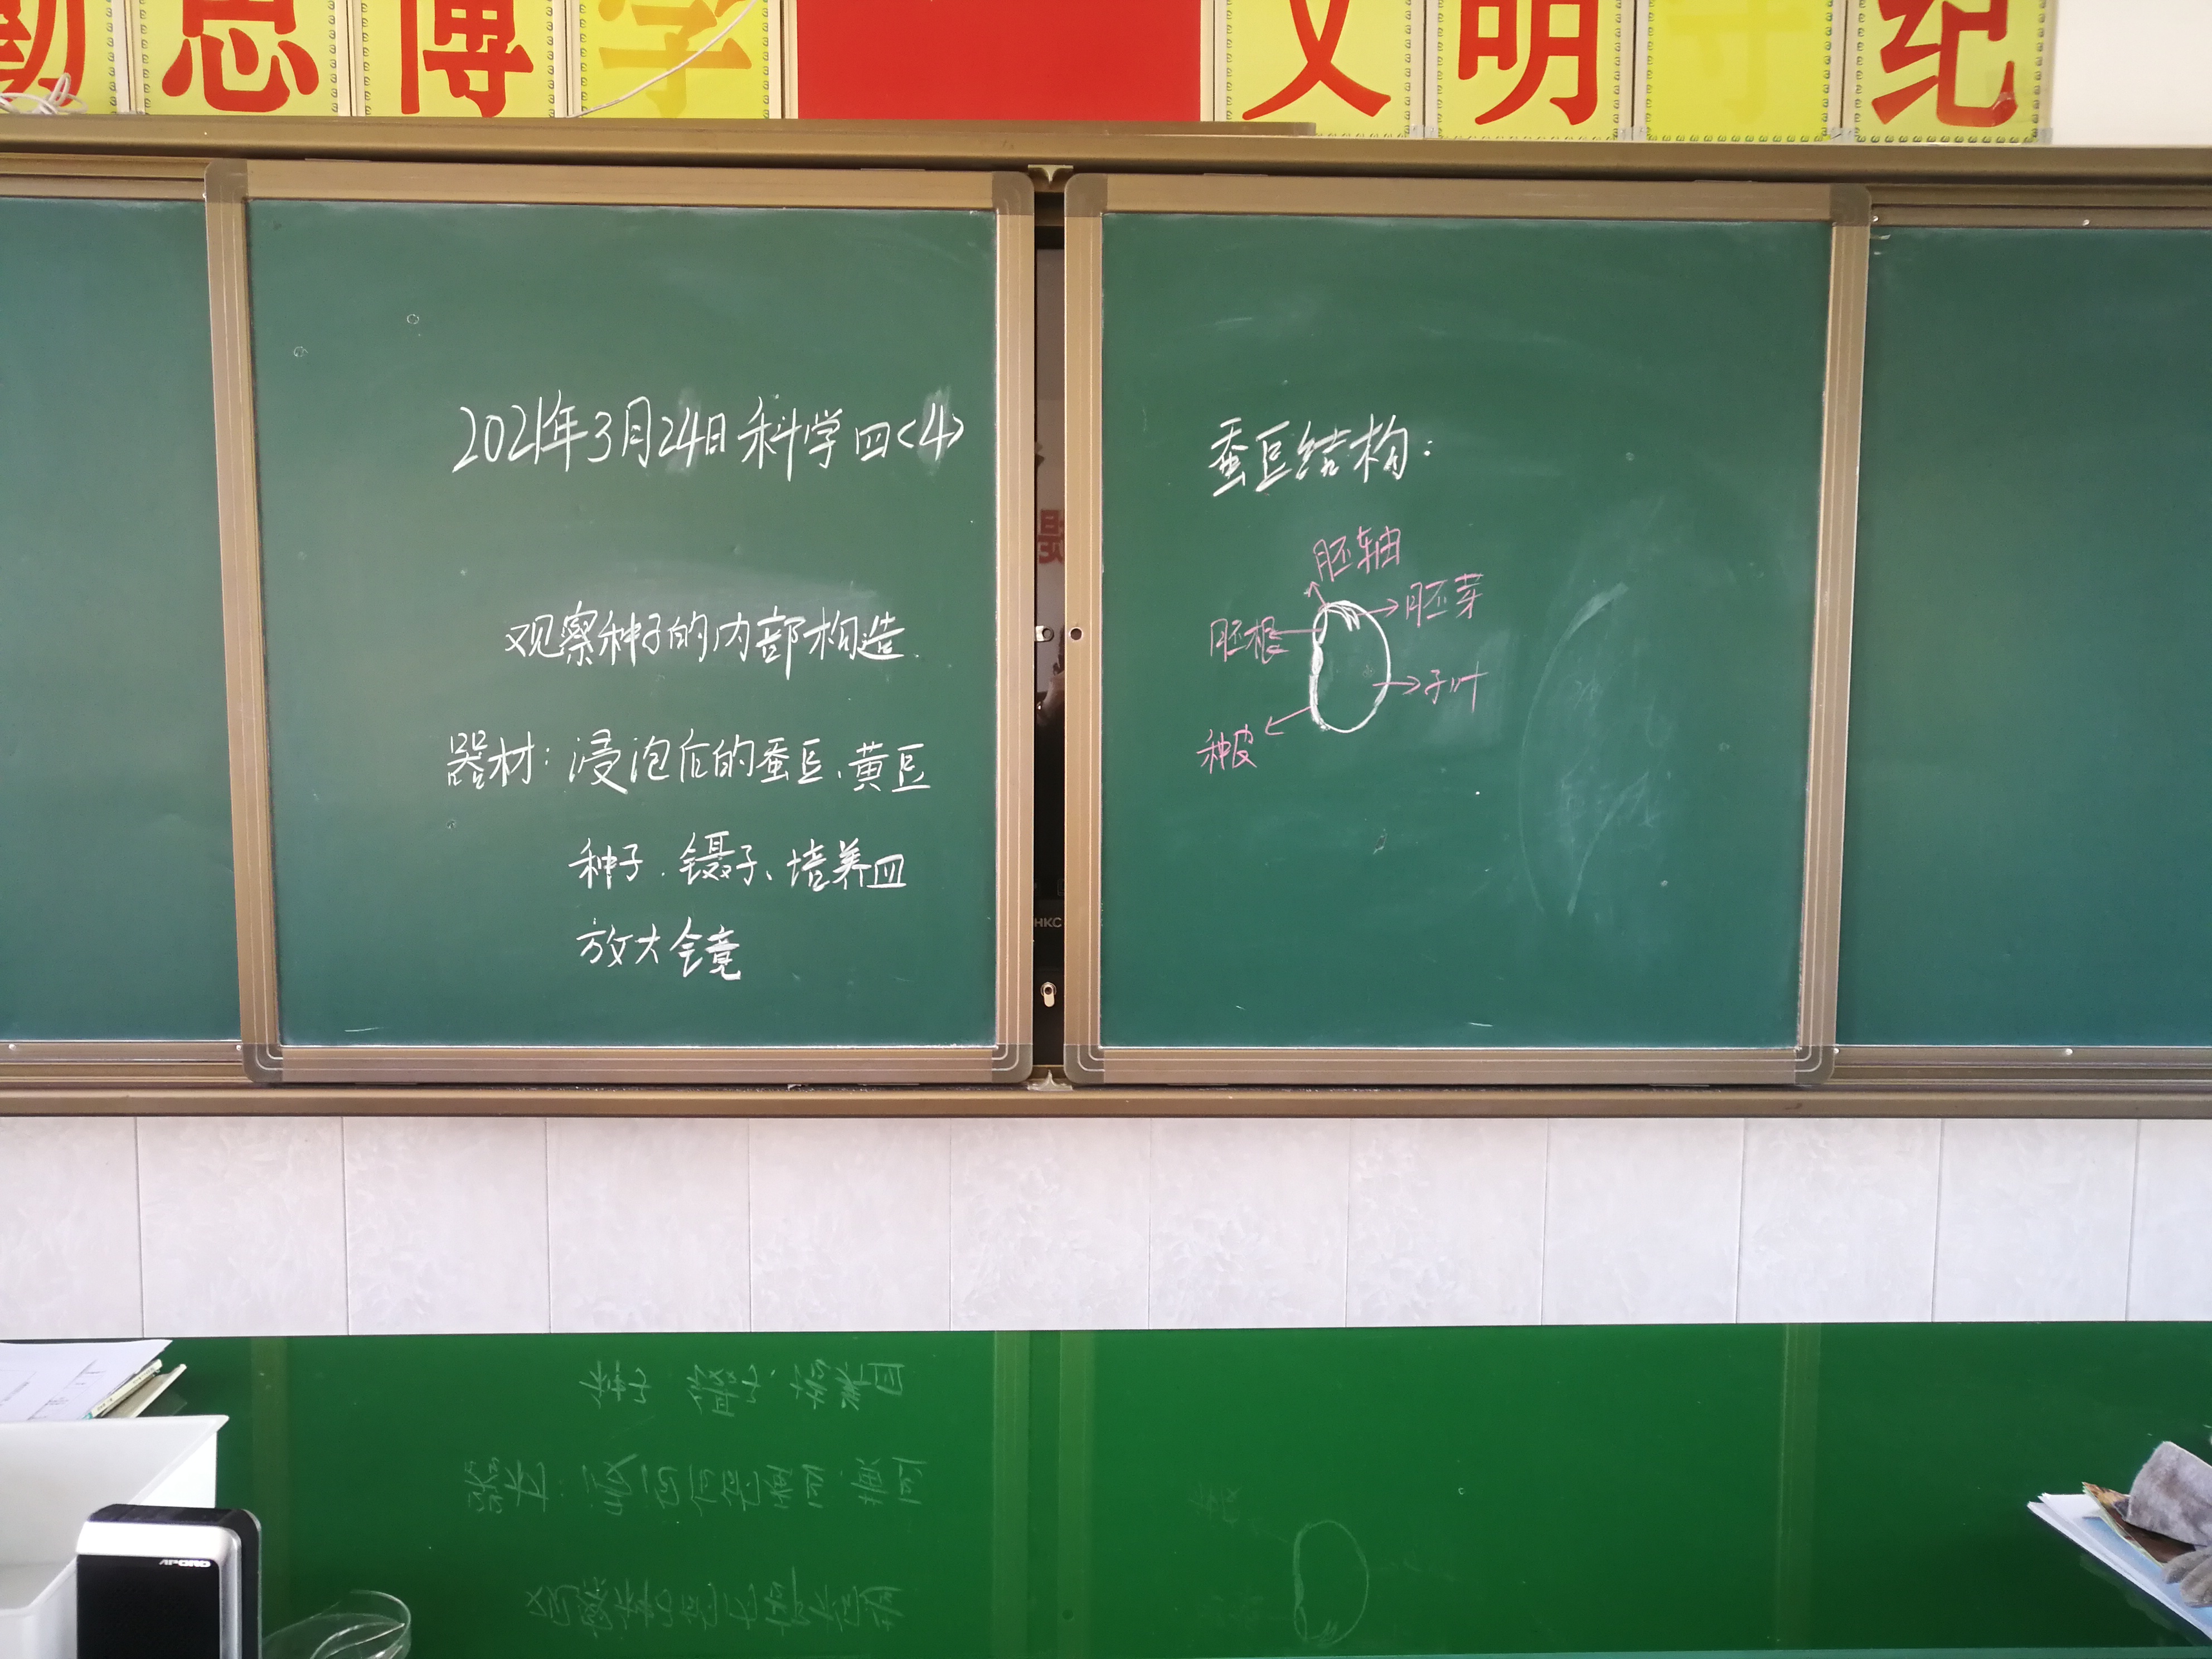 勤思博学 文明守纪
2021年3月24日 科学 四<4>
观察种子的内部构造.
器材：浸泡后的蚕豆、黄豆
种子、镊子、培养皿
放大镜
蚕豆结构：
胚轴
胚芽
胚根
子叶
种皮
HKC